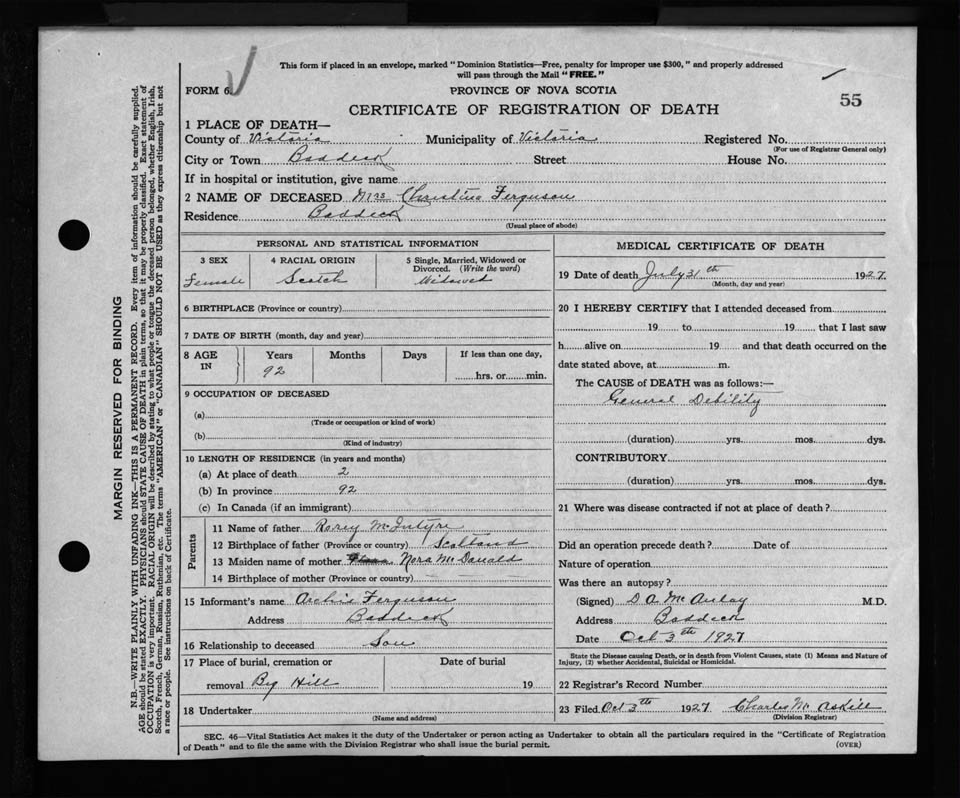 This form if placed in an envelope, marked "Dominion Statistics—Free, penalty for improper use $300," and properly addressed
will pass through the Mail "FREE."
FORM 6
PROVINCE OF NOVA SCOTIA
55
CERTIFICATE OF REGISTRATION OF DEATH
1 PLACE OF DEATH—
County of Victoria Municipality of Victoria Registered No.
(For use of Registrar General only)
City or Town Baddeck Street House No.
If in hospital or institution, give name
2 NAME OF DECEASED Mrs Christina Ferguson
Residence Baddeck
(Usual place of abode)
PERSONAL AND STATISTICAL INFORMATION
3 SEX 4 RACIAL ORIGIN 5 Single, Married, Widowed or
Divorced. (Write the word)
Female Scotch Widowed
6 BIRTHPLACE (Province or country)
7 DATE OF BIRTH (month, day and year)
8 AGE IN Years Months Days If less than one day,
92 hrs. or min.
9 OCCUPATION OF DECEASED
(a)
(Trade or occupation or kind of work)
(b)
(Kind of industry)
10 LENGTH OF RESIDENCE (in years and months)
(a) At place of death 2
(b) In province 92
(c) In Canada (if an immigrant)
Parents
11 Name of father Rorey McIntyre
12 Birthplace of father (Province or country) Scotland
13 Maiden name of mother Nora McDonald
14 Birthplace of mother (Province or country)
15 Informant's name Archie Ferguson
Address Baddeck
16 Relationship to deceased Son
17 Place of burial, cremation or Date of burial
removal Big Hill 19
18 Undertaker
(Name and address)
MEDICAL CERTIFICATE OF DEATH
19 Date of death July 31th 1927.
(Month, day and year)
20 I HEREBY CERTIFY that I attended deceased from
19 to 19 that I last saw
h alive on 19 and that death occurred on the
date stated above, at m.
The CAUSE of DEATH was as follows:—
General Debility
(duration) yrs. mos. dys.
CONTRIBUTORY
(duration) yrs. mos. dys.
21 Where was disease contracted if not at place of death?
Did an operation precede death? Date of
Nature of operation
Was there an autopsy?
(Signed) D A McAulay M.D.
Address Baddeck
Date Oct 3th 1927
State the Disease causing Death, or in death from Violent Causes, state (1) Means and Nature of
Injury, (2) whether Accidental, Suicidal or Homicidal.
22 Registrar's Record Number
23 Filed Oct 3th 1927 Charles McAskill
(Division Registrar)
SEC. 46—Vital Statistics Act makes it the duty of the Undertaker or person acting as Undertaker to obtain all the particulars required in the "Certificate of Registration
of Death" and to file the same with the Division Registrar who shall issue the burial permit.
(OVER)
MARGIN RESERVED FOR BINDING
N.B.—WRITE PLAINLY WITH UNFADING INK—THIS IS A PERMANENT RECORD. Every item of information should be carefully supplied.
AGE should be stated EXACTLY. PHYSICIANS should STATE CAUSE OF DEATH in plain terms, so that it may be properly classified. Exact statement of
OCCUPATION is very important. RACIAL ORIGIN will be described by stating to what people or tongue the deceased person belonged, whether English, Irish,
Scotch, French, German, Russian, Ruthenian, etc. The terms "AMERICAN" or "CANADIAN" SHOULD NOT BE USED as they express citizenship but not
a race or people. See instructions on back of Certificate.